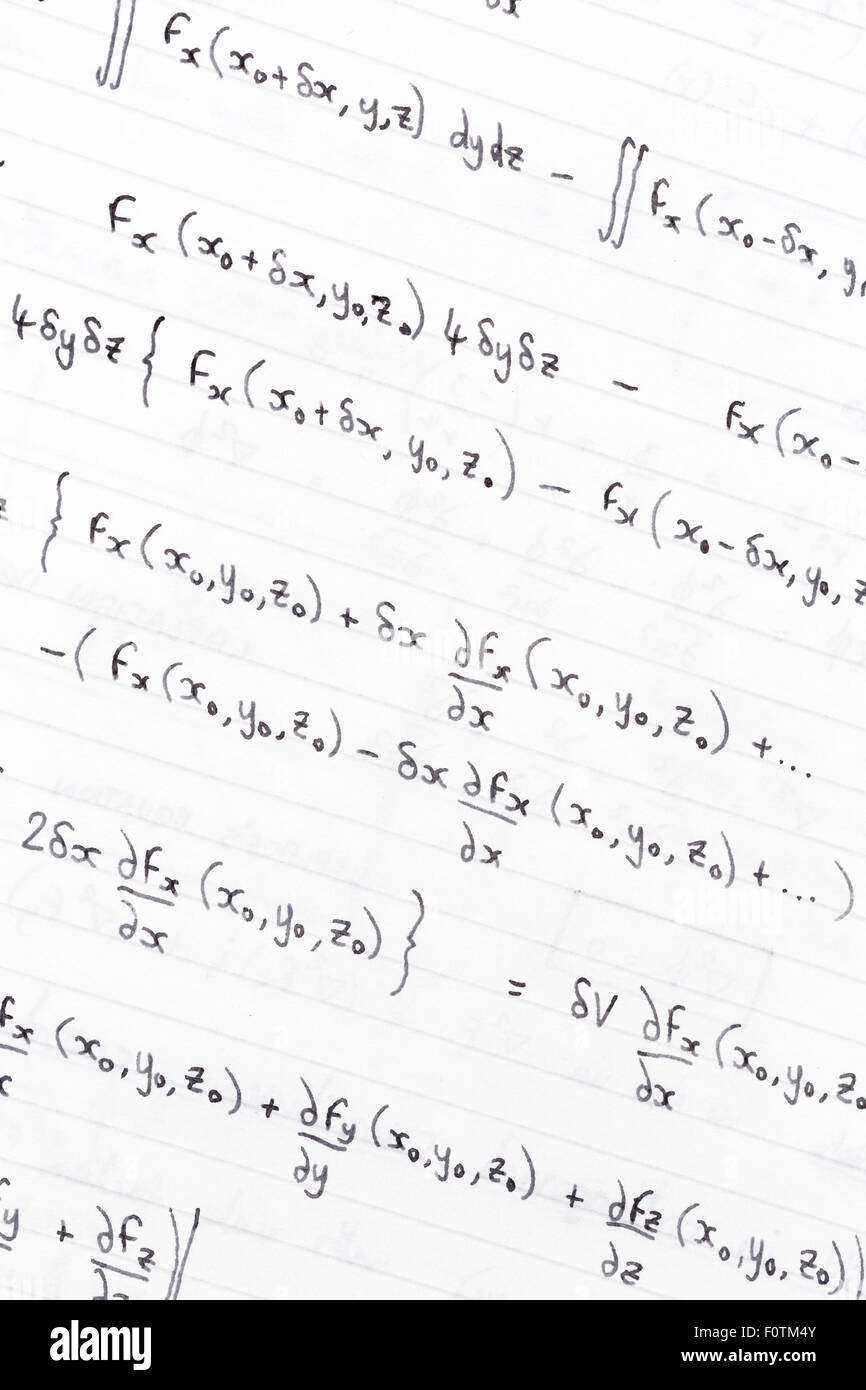 ∬ Fx(x0+δx, y, z) dydz − ∬ Fx(x0−δx, y,
Fx(x0+δx, y0, z0) 4δyδz − Fx(x0−
4δyδz { Fx(x0+δx, y0, z0) − Fx(x0−δx, y0, z
{ Fx(x0, y0, z0) + δx ∂Fx/∂x (x0, y0, z0) + ...
−( Fx(x0, y0, z0) − δx ∂Fx/∂x (x0, y0, z0) + ... )
2δx ∂Fx/∂x (x0, y0, z0) } = δV ∂Fx/∂x (x0, y0, z0
Fx/x (x0, y0, z0) + ∂Fy/∂y (x0, y0, z0) + ∂Fz/∂z (x0, y0, z0))
y + ∂Fz/∂z )|
alamy
Image ID: F0TM4Y
www.alamy.com